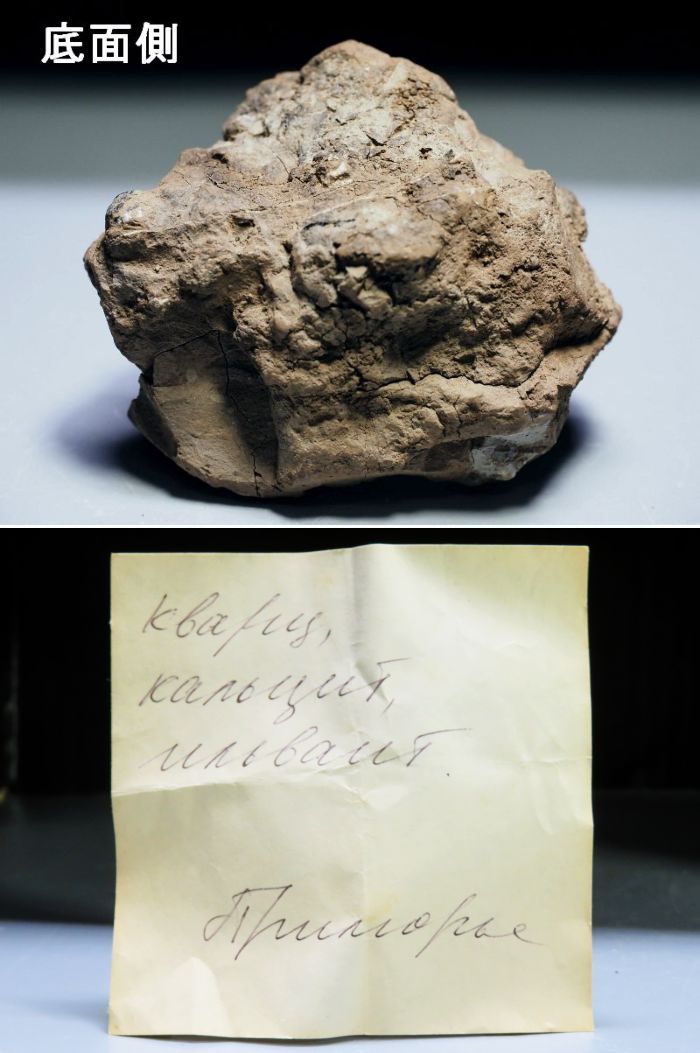 底面側
кварц,
кальцит,
ильваит.
Приморье